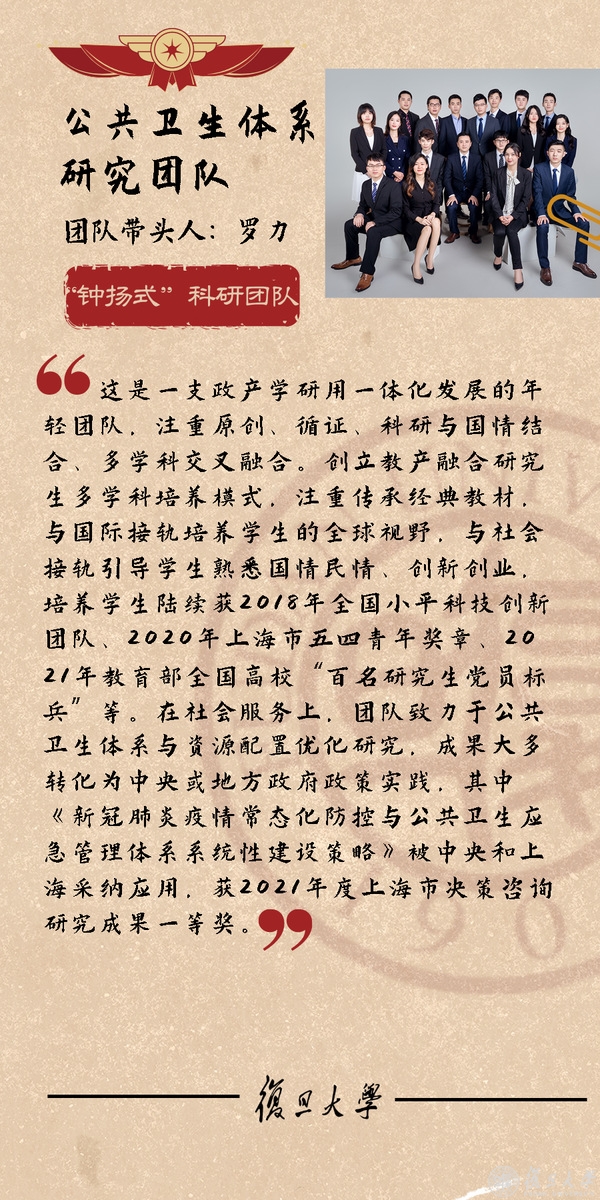 公共卫生体系
研究团队
团队带头人：罗力
“钟扬式”科研团队
这是一支政产学研用一体化发展的年
轻团队，注重原创、循证、科研与国情结
合、多学科交叉融合。创立教产融合研究
生多学科培养模式，注重传承经典教材，
与国际接轨培养学生的全球视野，与社会
接轨引导学生熟悉国情民情、创新创业，
培养学生陆续获2018年全国小平科技创新
团队、2020年上海市五四青年奖章、20
21年教育部全国高校“百名研究生党员标
兵”等。在社会服务上，团队致力于公共
卫生体系与资源配置优化研究，成果大多
转化为中央或地方政府政策实践，其中
《新冠肺炎疫情常态化防控与公共卫生应
急管理体系系统性建设策略》被中央和上
海采纳应用，获2021年度上海市决策咨询
研究成果一等奖。
復旦大學